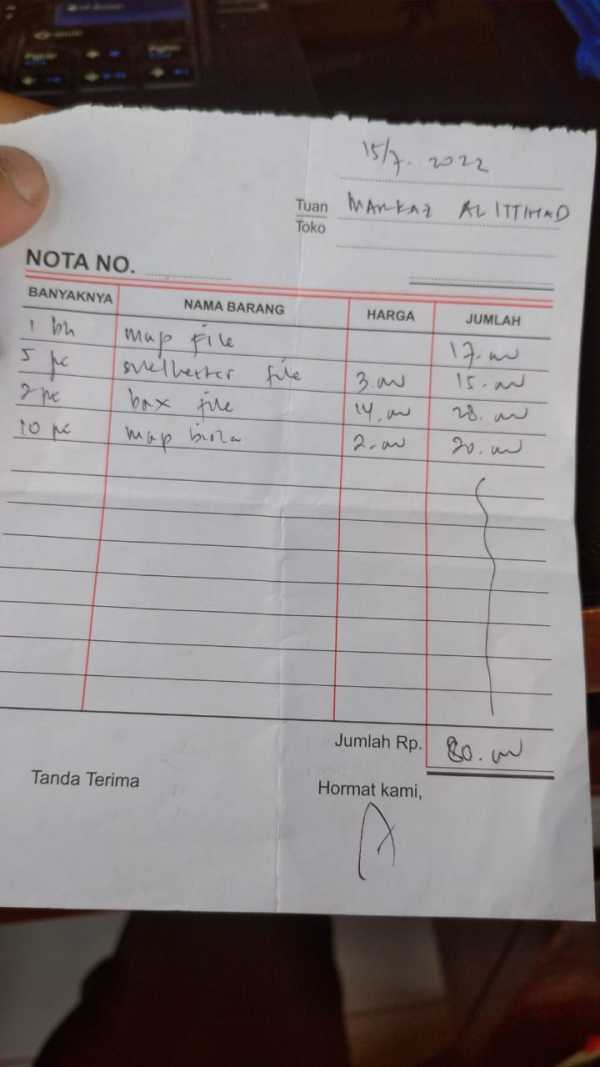 15/7. 2022
Tuan MARKAZ AL ITTIHAD
Toko
NOTA NO.
BANYAKNYA NAMA BARANG HARGA JUMLAH
1 bh map file 17.00
5 pc file 3.00 15.00
2 pc box file 14.00 28.00
10 pc map biola 2.00 20.00
Jumlah Rp. 80.00
Tanda Terima Hormat kami,